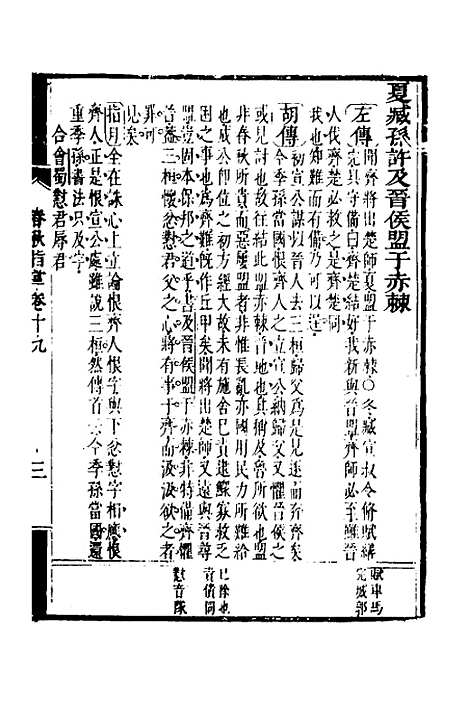 夏臧孫許及晉侯盟于赤棘
左傳 聞齊將出楚師夏盟于赤棘○冬臧宣叔令修賦繕
完具守備曰齊楚結好我新與晉盟齊師必至雖晉
人伐齊楚必救之是齊楚同
我也知難而有備乃可以逞
胡傳 初宣公謀以晉人去三桓歸父為是見逐而奔齊矣
今季孫當國恨齊人之立宣公納歸父又懼晉侯之
或見討也於是往與為赤棘之盟
非春秋所貴而惡屢盟者非惟長亂亦國用民力所難給
也成公即位之初方經大故未有施舍已責逮鰥寡救乏
困之事也為齊難既作丘甲矣聞將出楚師又遠與晉尋
盟豈固本保邦之道乎書及晉侯盟于赤棘非特備齊懼
晉蓋三桓懷忿懟君父之心將有事于齊而汲汲欲之者
罪可
見矣
指月 全在誅心上立論恨齊人恨字與下忿懟字相應恨
齊人正是恨宣公處雖說三桓然傳首云今季孫當國還
重季孫書法只及字
合會蜀 懟君辱君
春秋指月卷十九
三
賦車馬
完城郭
已除也
責債同
懟音隊